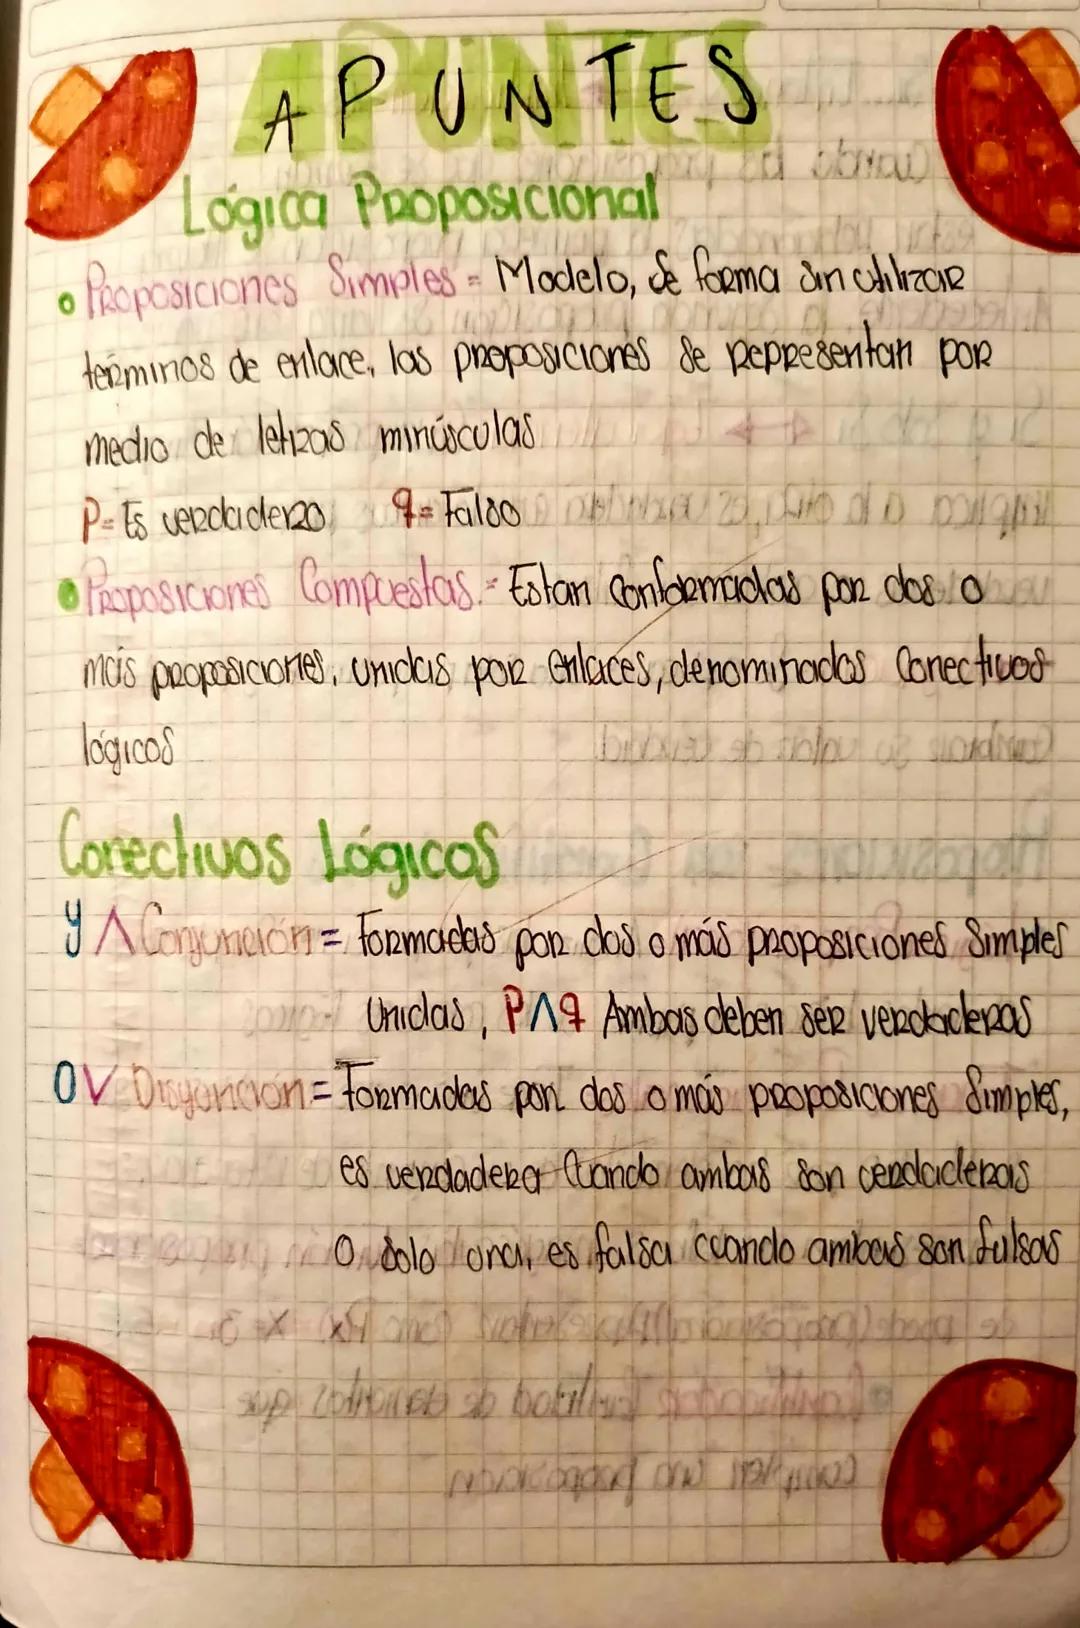 APUNTES
Lógica Proposicional
• Proposiciones Simples = Modelo, de forma sin utilizar
términos de enlace, las proposiciones se representan por
medio de letras minúsculas
P= Es verdadero q= Falso
• Proposiciones Compuestas.= Estan conformadas por dos o
más proposiciones, unidas por enlaces, denominados Conectivos
lógicos
Conectivos Lógicos
y ∧ Conjunción = Formadas por dos o más proposiciones Simples
Unidas, P∧q Ambas deben ser verdaderas
O V Disyunción = Formadas por dos o más proposiciones Simples,
es verdadera Cuando ambas son verdaderas
O solo una, es falsa cuando ambas son falsas